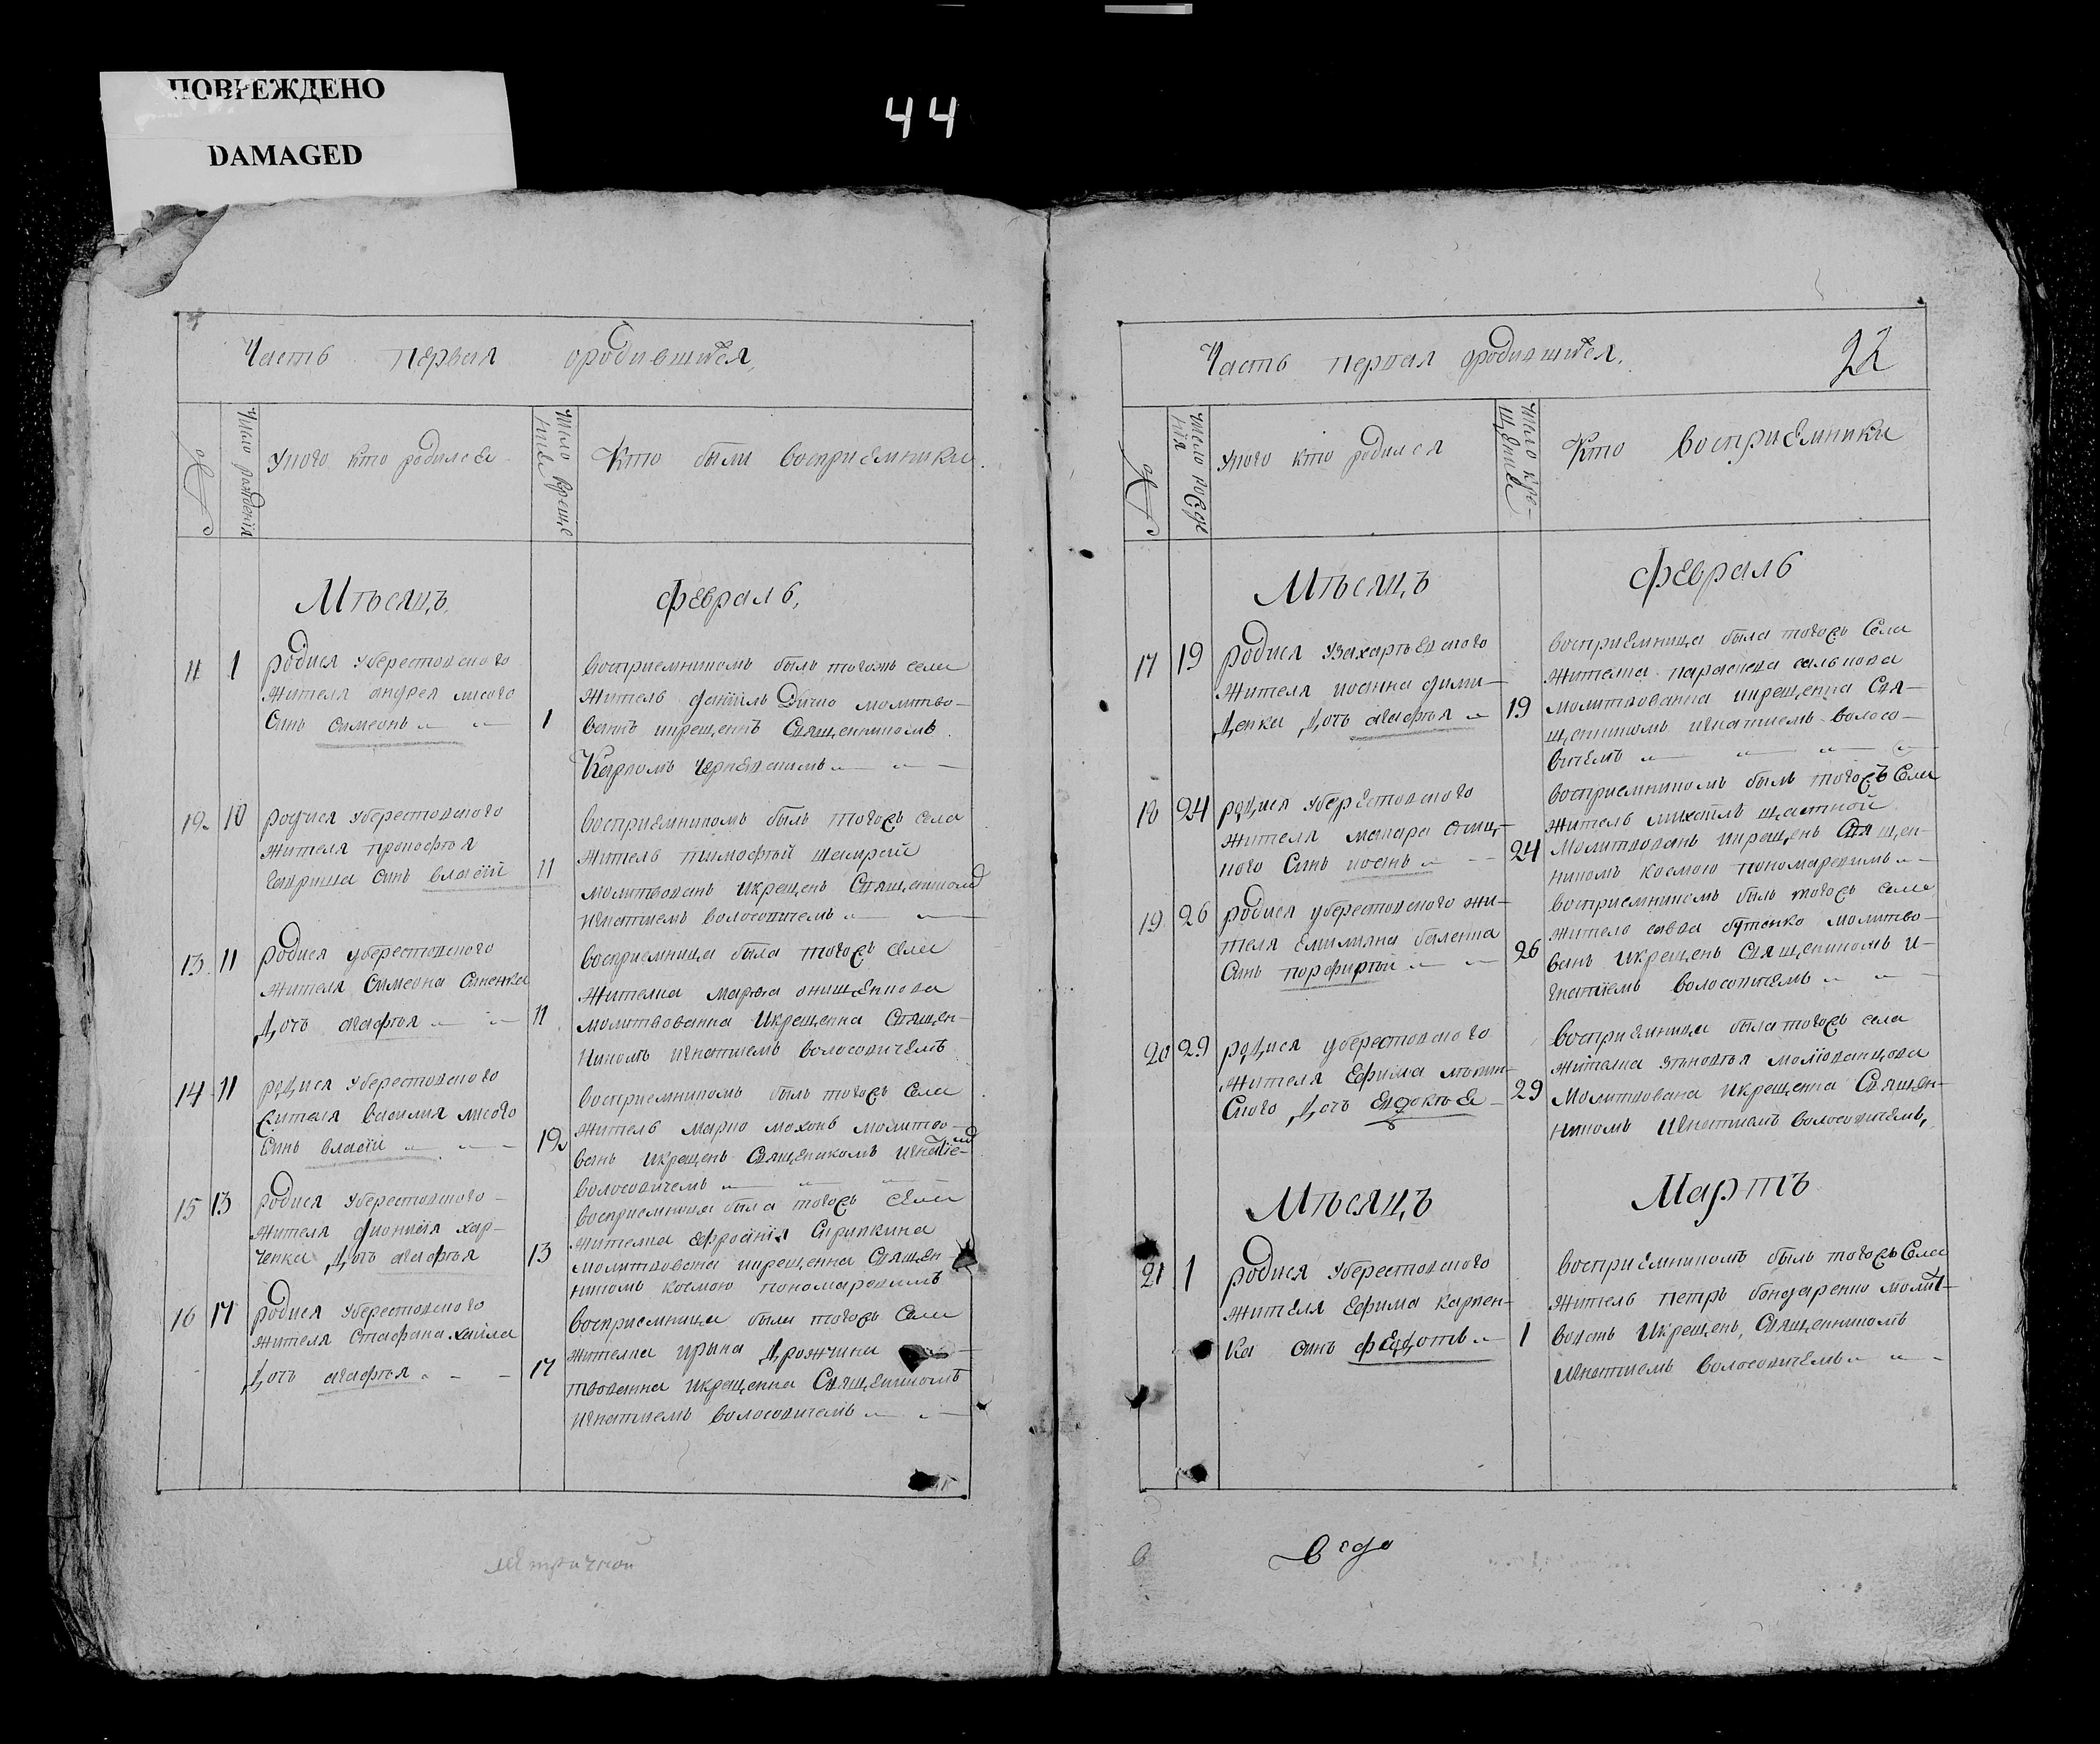 ПОВРЕЖДЕНО
DAMAGED
44
Часть первая ородившихся,
№
Число рождения
Укого кто родился
Число креще
ния
Кто были восприемники.
Мѣсяцъ
Февраль,
11
1
родися уберестовского
жителя андрея лисого
Синъ Симеонъ
1
восприемникомъ былъ тогожъ села
житель даніилъ молитво-
ванъ икрещенъ Священникомъ
Карпомъ Чернявскимъ
12
10
родися уберестовского
жителя прокофія
Гавриша синъ власій
11
восприемникомъ былъ тогожъ села
житель тимофѣй шамрай
молитвованъ икрещенъ Священникомъ
игнатиемъ волосовичемъ
13
11
родися уберестовского
жителя Симеона Синенка
Дочь агафія
11
восприемница была тогожъ села
жителка марфа онищенкова
молитвованна икрещенна Священ-
никомъ игнатиемъ волосовичемъ
14
11
родися уберестовского
жителя василия лисого
Синъ власій
12
восприемникомъ былъ тогожъ села
житель марко махонь молитво-
ванъ икрещенъ Священикомъ игнатіе-
волосовичемъ
15
13
родися уберестовского
жителя дионисія хар-
ченка Дочь агафія
13
восприемница была тогожъ села
жителка ефросінія Скрипкина
молитвована икрещенна Священ
никомъ космою пономаревимъ
16
17
родися уберестовского
жителя Стефана хайла
Дочь агафія
17
восприемница была тогожъ села
жителка ирина Дрожчина
твованна икрещенна Священникомъ
игнатиемъ волосовичемъ
метрической
Часть первая ородившихся,
22
№
число рожде
нія
укого кто родился
число кре-
щения
Кто восприемники
Мѣсяцъ
Февраль
17
19
родися узахарьевского
жителя иоанна дими-
Денка Дочь агафія
19
восприемница была тогожъ села
жителка параскева салькова
молитвованна икрещенна Свя-
щенникомъ игнатиемъ волосо-
вичемъ
18
24
родися уберестовского
жителя макара
ного Синъ иоанъ
24
восприемникомъ былъ тогожъ села
житель михаилъ щастной
молитвованъ икрещенъ Священ-
никомъ космою пономаревимъ
19
26
родися уберестовского жи-
теля Емилияна
Синъ порфирій
26
восприемникомъ былъ тогожъ села
житель савва бутенко молитво-
ванъ икрещенъ Священикомъ и-
гнатіемъ волосовичемъ
20
29
родися уберестовского
жителя Ефима
Ского Дочь Евдокія
29
восприемница была тогожъ села
жителка зѣновія молдованцова
молитвована икрещенна Священ-
никомъ игнатиемъ волосовичемъ,
Мѣсяцъ
Мартъ
21
1
родися уберестовского
жителя Ефима карпен-
ка синъ Федотъ
1
восприемникомъ былъ тогожъ села
житель петръ бондаренко молит-
вованъ икрещенъ, Священникомъ
игнатиемъ волосовичемъ